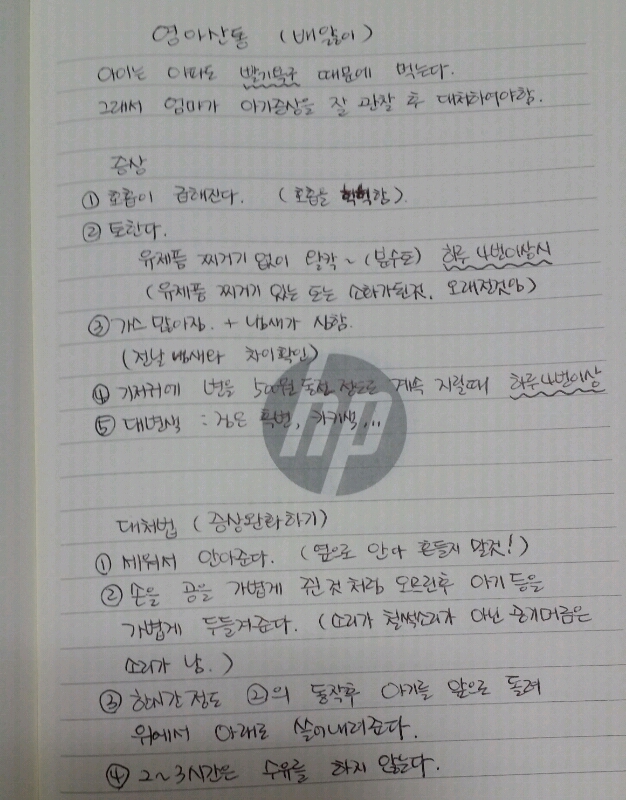 영아산통 (배앓이)
아이는 아파도 빨기욕구 때문에 먹는다.
그래서 엄마가 아기증상을 잘 관찰 후 대처하여야함.
증상
① 호흡이 급해진다. (호흡을 헉헉함)
② 토한다.
유제품 찌거기 없이 왈칵~ (분수토) 하루 4번이상시
(유제품 찌거기 있는 토는 소화가된것. 오래된것임)
③ 가스 많아짐. + 냄새가 심함.
(전날 냄새와 차이확인)
④ 기저귀에 변을 500원 동전 정도로 계속 지릴때 하루4번이상
⑤ 대변색 : 검은 흑변, 카키색...
hp
대처법 (증상완화하기)
① 세워서 안아준다. (옆으로 안아 흔들지 말것!)
② 손을 공을 가볍게 쥔것처럼 오므린후 아기등을
가볍게 두들겨준다. (소리가 철썩소리가 아닌 공기머금은
소리가 남.)
③ 한시간정도 ②의 동작후 아기를 앞으로 돌려
위에서 아래로 쓸어내려준다.
④ 2~3시간은 수유를 하지 않는다.